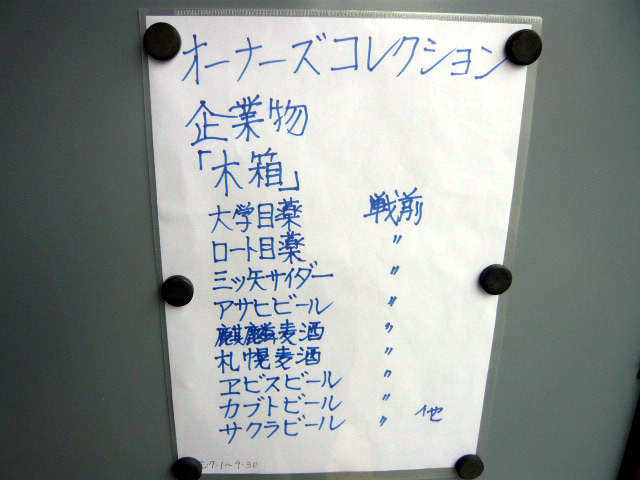 オーナーズコレクション
企業物
「木箱」
大学目薬 戦前
ロート目薬 〃
三ッ矢サイダー 〃
アサヒビール 〃
麒麟麦酒 〃
札幌麦酒 〃
ヱビスビール 〃
カブトビール 〃
サクラビール 〃 他
7・1〜9・30